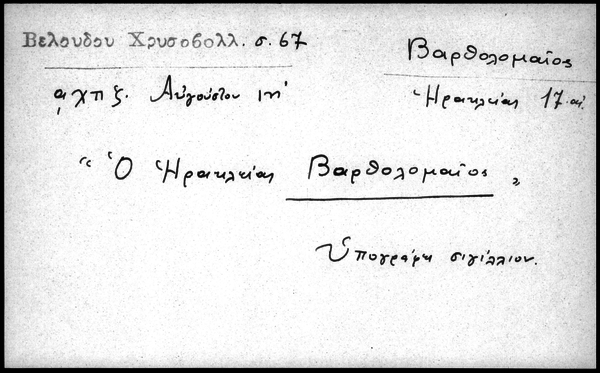 Βελουδου Χρυσοβολλ. σ. 67
Βαρθολομαῖος
͵αχπζ. Αὐγούστου ιη'
Ἡρακλείας 17. αἰ.
“ Ὁ Ἡρακλείας Βαρθολομαῖος „
Ὑπογράφει σιγίλλιον.